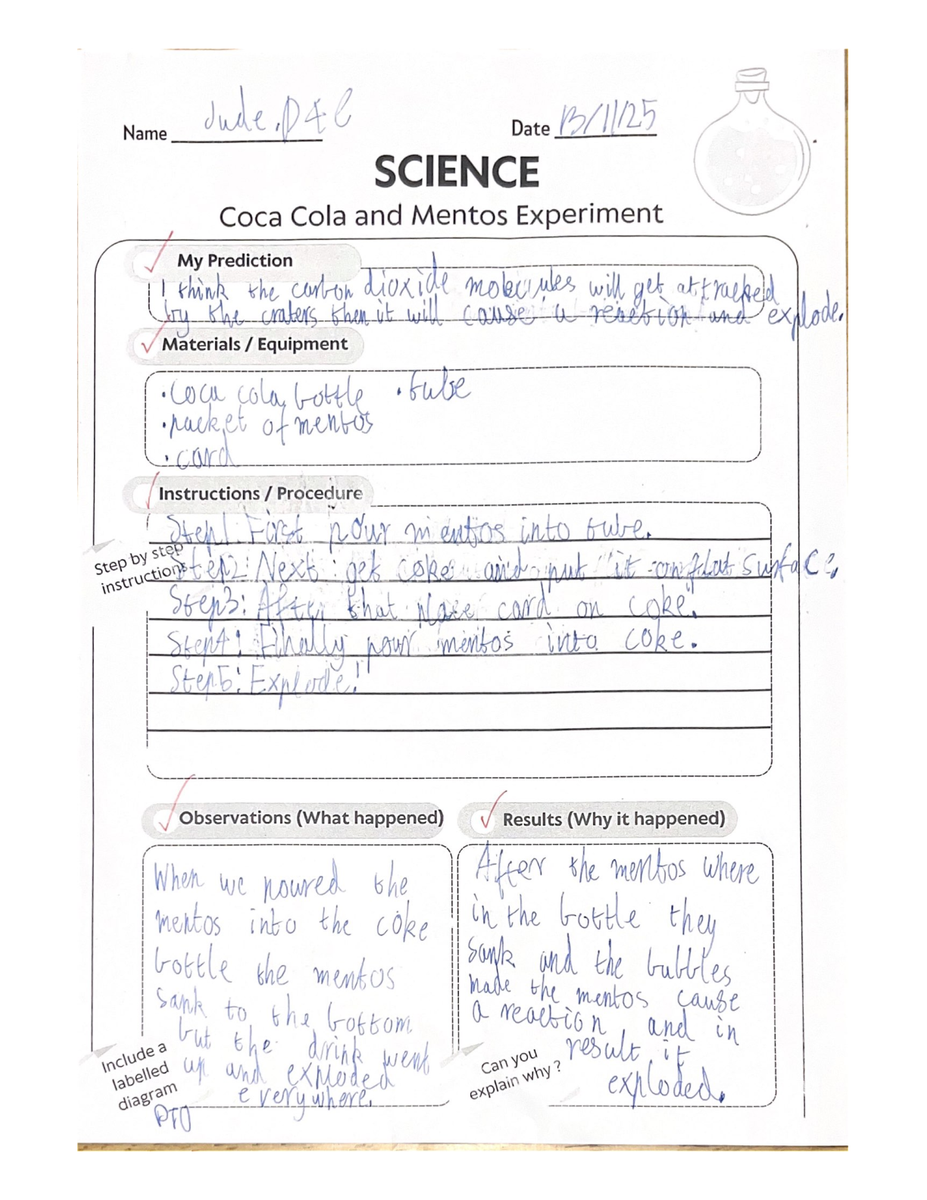 Name Jude.D 4C
Date 13/11/25
SCIENCE
Coca Cola and Mentos Experiment
My Prediction
I think the carbon dioxide molecules will get attracted
by the craters then it will cause a reaction and explode.
Materials / Equipment
·Coca cola bottle ·tube
·packet of mentos
·card
Instructions / Procedure
Step by step
instructions
Step1: First pour mentos into tube.
Step2: Next get coke and put it on flat surface.
Step3: After that place card on coke.
Step4: Finally pour mentos into coke.
Step5: Explode!
Observations (What happened)
When we poured the
mentos into the coke
bottle the mentos
sank to the bottom
but the drink went
up and exploded
everywhere.
Include a
labelled
diagram
PTO
Results (Why it happened)
After the mentos where
in the bottle they
sank and the bubbles
made the mentos cause
a reaction, and in
result it
exploded.
Can you
explain why?